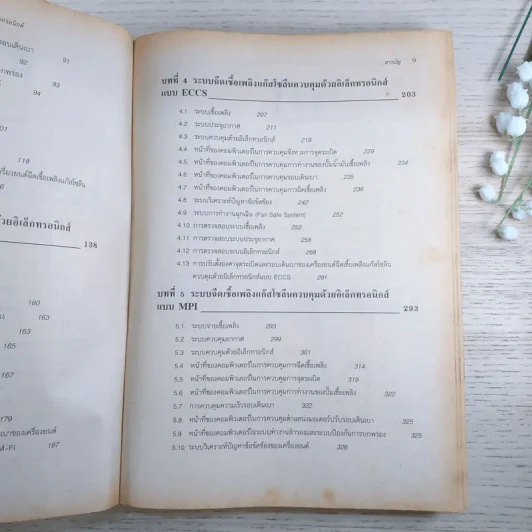 อนิกส์
91
92
93
94
101
116
138
160
163
163
165
167
179
M-Fi 197
สารบัญ 9
บทที่ 4 ระบบฉีดเชื้อเพลิงแก๊สโซลีนควบคุมด้วยอิเล็กทรอนิกส์
แบบ ECCS 203
4.1 ระบบเชื้อเพลิง 207
4.2 ระบบประจุอากาศ 211
4.3 ระบบควบคุมด้วยอิเล็กทรอนิกส์ 219
4.4 หน้าที่ของคอมพิวเตอร์ในการควบคุมจังหวะการจุดระเบิด 229
4.5 หน้าที่ของคอมพิวเตอร์ในการควบคุมการทำงานของปั๊มน้ำมันเชื้อเพลิง 234
4.6 หน้าที่ของคอมพิวเตอร์ในการควบคุมรอบเดินเบา 235
4.7 หน้าที่ของคอมพิวเตอร์ในการควบคุมการฉีดเชื้อเพลิง 236
4.8 ระบบวิเคราะห์ปัญหาข้อขัดข้อง 242
4.9 ระบบการทำงานฉุกเฉิน (Fail Safe System) 252
4.10 การตรวจสอบระบบเชื้อเพลิง 252
4.11 การตรวจสอบระบบประจุอากาศ 258
4.12 การตรวจสอบระบบอิเล็กทรอนิกส์ 268
4.13 การปรับตั้งองศาจุดระเบิดและรอบเดินเบาของเครื่องยนต์ฉีดเชื้อเพลิงแก๊สโซลีน
ควบคุมด้วยอิเล็กทรอนิกส์แบบ ECCS 291
บทที่ 5 ระบบฉีดเชื้อเพลิงแก๊สโซลีนควบคุมด้วยอิเล็กทรอนิกส์
แบบ MPI 293
5.1 ระบบจ่ายเชื้อเพลิง 293
5.2 ระบบควบคุมอากาศ 299
5.3 ระบบควบคุมด้วยอิเล็กทรอนิกส์ 301
5.4 หน้าที่ของคอมพิวเตอร์ในการควบคุมการฉีดเชื้อเพลิง 314
5.5 หน้าที่ของคอมพิวเตอร์ในการควบคุมการจุดระเบิด 319
5.6 หน้าที่ของคอมพิวเตอร์ในการควบคุมการทำงานของปั๊มเชื้อเพลิง 322
5.7 การควบคุมความเร็วรอบเดินเบา 322
5.8 หน้าที่ของคอมพิวเตอร์ในการควบคุมตำแหน่งมอเตอร์ปรับรอบเดินเบา 325
5.9 หน้าที่ของคอมพิวเตอร์ในระบบทำงานสำรองและระบบป้องกันการบกพร่อง 325
5.10 ระบบวิเคราะห์ปัญหาข้อขัดข้องของเครื่องยนต์ 326